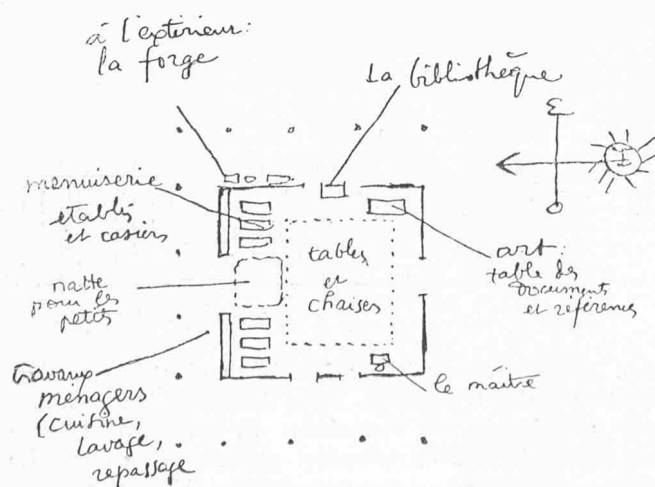 à l'extérieur:
la forge
La bibliothèque
E
O
menuiserie
établis
et casiers
natte
pour les
petits
tables
et
chaises
art:
table des
documents
et références
le maître
travaux
ménagers
(cuisine,
lavage,
repassage